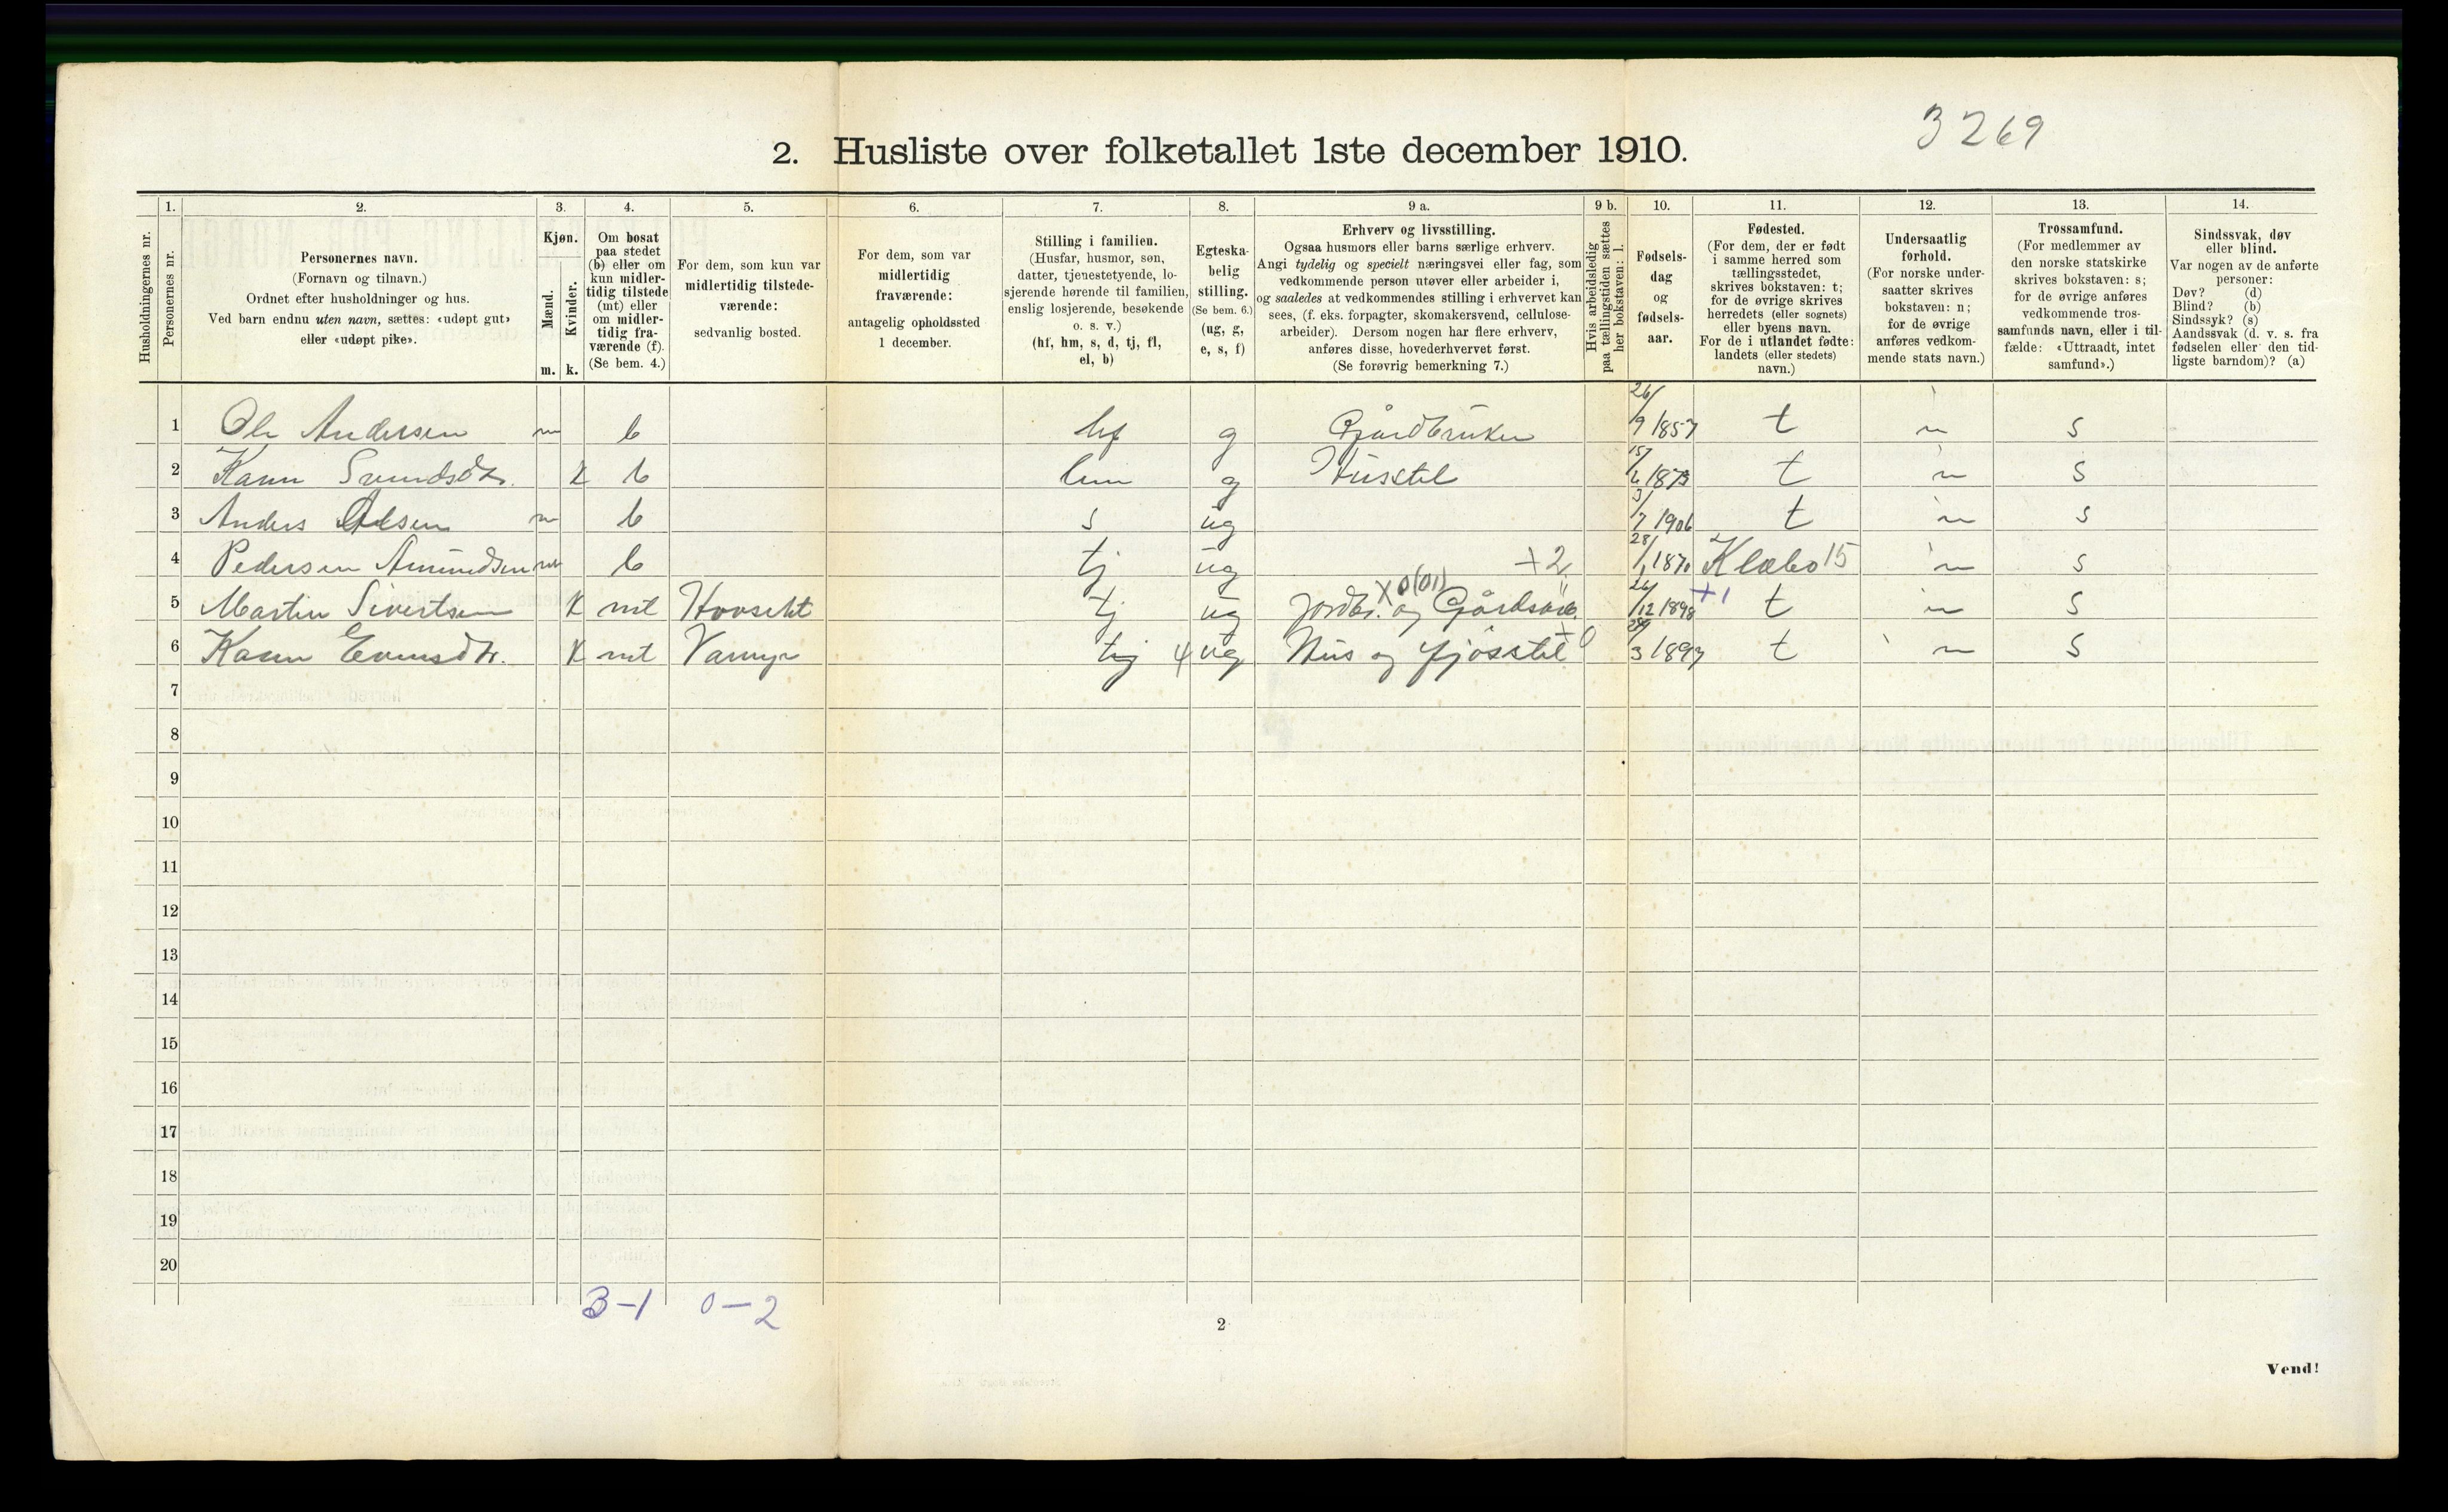 3269
2. Husliste over folketallet 1ste december 1910.
Husholdningernes nr.
1.
Personernes nr.
2.
Personernes navn.
(Fornavn og tilnavn.)
Ordnet efter husholdninger og hus.
Ved barn endnu uten navn, sættes: «udøpt gut»
eller «udøpt pike».
3.
Kjøn.
Mænd.
Kvinder.
m. k.
4.
Om bosat
paa stedet
(b) eller om
kun midler-
tidig tilstede
(mt) eller
om midler-
tidig fra-
værende (f).
(Se bem. 4.)
5.
For dem, som kun var
midlertidig tilstede-
værende:
sedvanlig bosted.
6.
For dem, som var
midlertidig
fraværende:
antagelig opholdssted
1 december.
7.
Stilling i familien.
(Husfar, husmor, søn,
datter, tjenestetyende, lo-
sjerende hørende til familien,
enslig losjerende, besøkende
o. s. v.)
(hf, hm, s, d, tj, fl,
el, b)
8.
Egteska-
belig
stilling.
(Se bem. 6.)
(ug, g,
e, s, f)
9 a.
Erhverv og livsstilling.
Ogsaa husmors eller barns særlige erhverv.
Angi tydelig og specielt næringsvei eller fag, som
vedkommende person utøver eller arbeider i,
og saaledes at vedkommendes stilling i erhvervet kan
sees, (f. eks. forpagter, skomakersvend, cellulose-
arbeider). Dersom nogen har flere erhverv,
anføres disse, hovederhvervet først.
(Se forøvrig bemerkning 7.)
9 b.
Hvis arbeidsledig
paa tællingstiden sættes
her bokstaven: l.
10.
Fødsels-
dag
og
fødsels-
aar.
11.
Fødested.
(For dem, der er født
i samme herred som
tællingsstedet,
skrives bokstaven: t;
for de øvrige skrives
herredets (eller sognets)
eller byens navn.
For de i utlandet fødte:
landets (eller stedets)
navn.)
12.
Undersaatlig
forhold.
(For norske under-
saatter skrives
bokstaven: n;
for de øvrige
anføres vedkom-
mende stats navn.)
13.
Trossamfund.
(For medlemmer av
den norske statskirke
skrives bokstaven: s;
for de øvrige anføres
vedkommende tros-
samfunds navn, eller i til-
fælde: «Uttraadt, intet
samfund».)
14.
Sindssvak, døv
eller blind.
Var nogen av de anførte
personer:
Døv? (d)
Blind? (b)
Sindssyk? (s)
Aandssvak (d. v. s. fra
fødselen eller den tid-
ligste barndom)? (a)
1 Ole Andersen m b hf g Gårdbruker 26/9 1857 t n s
2 Karen k b hm g Husstel 15/2 1873 t n s
3 Anders Olsen m b s ug 3/7 1906 t n s
4 Pedersen Amundsen m b tj ug +2 28/1 1870 Klæbo 15 n s
5 Martin Sivertsen k mt tj ug Jordbr. og X0(01) 26/12 1898 +1 t n s
6 Karen k mt tj ug Hus og fjøsstel 3 1897 t n s
7
8
9
10
11
12
13
14
15
16
17
18
19
20
3-1 0-2
2
Vend!